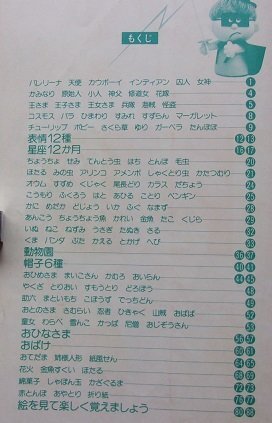 もくじ
バレリーナ 天使 カウボーイ インディアン 囚人 女神 1
かみなり 原始人 小人 神父 修道女 花嫁 4
王さま 王子さま 王女さま 兵隊 海賊 怪盗 5
コスモス バラ ひまわり すみれ すずらん マーガレット 8
チューリップ ポピー さくら草 ゆり ガーベラ たんぽぽ 9
表情12種
星座12か月
ちょうちょ せみ てんとう虫 はち とんぼ 毛虫 20
ほたる みの虫 アリンコ アメンボ しゃくとり虫 かたつむり 21
オウム すずめ くじゃく 尾長どり カラス だちょう 24
こうもり ふくろう はと あひる ことり ペンギン 25
かに めだか どじょう いか ふぐ なまず 28
あんこう ちょうちょう魚 かれい 金魚 たこ くじら 29
いぬ ねこ ねずみ うさぎ たぬき さる 32
くま パンダ ぶた かえる とかげ へび 33
動物園 36 37
帽子6種 40 41
おひめさま まいこさん かむろ おいらん 44
やくざ とりおい すもうとり どろぼう 45
助六 まといもち こぼうず でっちどん 48
おとのさま さむらい 忍者 ひきゃく 山賊 おばば 52
童女 わらべ 雪んこ かっぱ 尼僧 おじぞうさん 53
おひなさま 56 57
おばけ 60 61
おてだま 姉様人形 紙風せん
花火 金魚すくい ほたる
綿菓子 しゃぼん玉 かざぐるま 72 73
赤とんぼ あやとり 折り紙 76 77
絵を見て楽しく覚えましょう 80